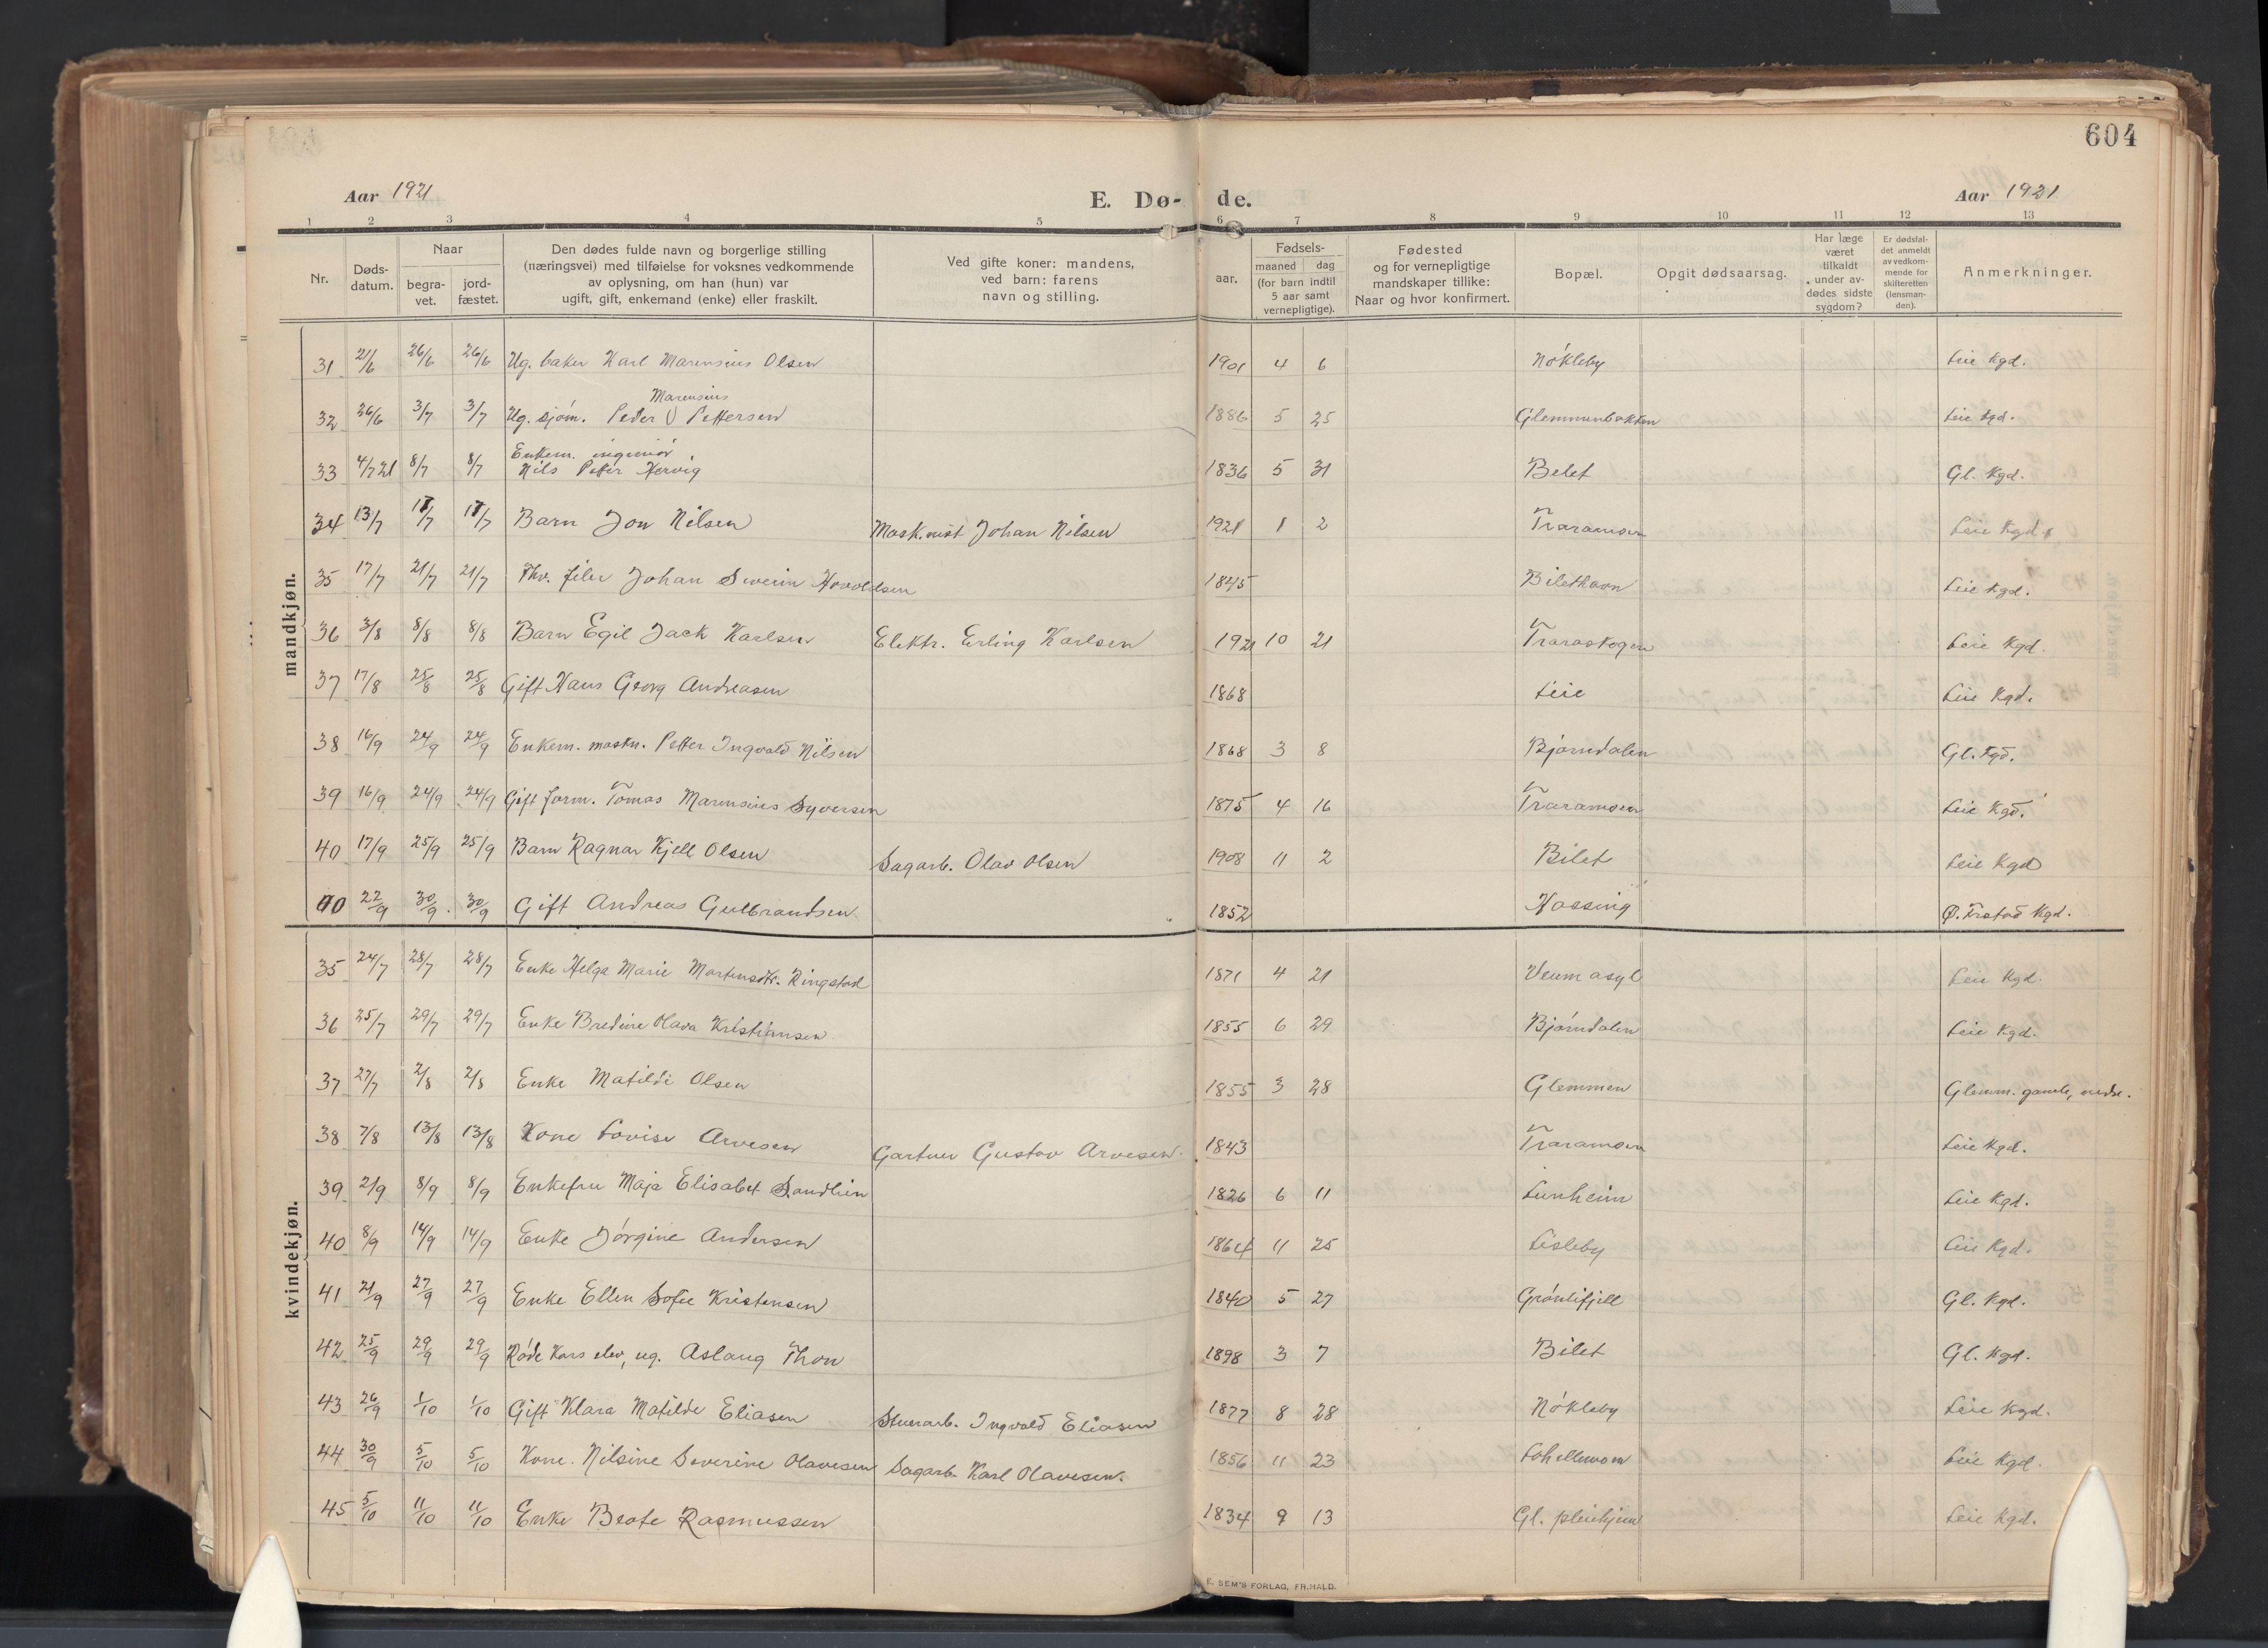 604
Aar 1921 E. Dø- de. Aar 1921
1 2 3 4 5 6 7 8 9 10 11 12 13
Nr. Døds-datum. Naar begra-vet. jord-fæstet. Den dødes fulde navn og borgerlige stilling (næringsvei) med tilføielse for voksnes vedkommende av oplysning, om han (hun) var ugift, gift, enkemand (enke) eller fraskilt. Ved gifte koner: mandens, ved barn: farens navn og stilling. Fødsels- aar. maaned dag (for barn indtil 5 aar samt vernepligtige). Fødested og for vernepligtige mandskaper tillike: Naar og hvor konfirmert. Bopæl. Opgit dødsaarsag. Har læge været tilkaldt under av-dødes sidste sygdom? Er dødsfal-det anmeldt av vedkom-mende for skifteretten (lensman-den). Anmerkninger.
mandkjøn.
31 21/6 26/6 26/6 Ug. baker Karl Marensius Olsen 1901 4 6 Nókleby Leie Kgd.
Marensius
32 26/6 3/7 3/7 Ug. sjóm. Peder Pettersen 1886 5 25 Leie Kgd.
Enkem. ingeniór
33 4/7 21 8/7 8/7 Nils Petter Hervig 1836 5 31 Belet Gl. Kgd.
34 13/7 17/7 17/7 Barn Jon Nilsen Mask.nist Johan Nilsen 1921 1 2 Traramoen Leie Kgd.
35 17/7 21/7 21/7 Fhv. filer Johan Severin Havoldsen 1845 Bilethavn Leie Kgd.
36 3/8 8/8 8/8 Barn Egil Jack Karlsen Elektr. Erling Karlsen 1921 10 21 Traraskogen Leie Kgd.
37 17/8 25/8 25/8 Gift Hans Georg Andreasen 1868 Leie Leie Kgd.
38 16/9 24/9 24/9 Enkem. maskn. Petter Ingvald Nilsen 1868 3 8 Bjørndalen Gl. Kgd.
39 16/9 24/9 24/9 Gift form. Tomas Marensius Syversen 1875 4 16 Traramoen Leie Kgd.
40 17/9 25/9 25/9 Barn Ragnar Kjell Olsen Sagarb. Olav Olsen 1908 11 2 Bilet Leie Kgd
22/9 30/9 30/9 Gift Andreas Gulbrandsen 1852 Kossing Ø. Frstad Kgd.
kvindekjøn.
35 24/7 28/7 28/7 Enke Helga Marie Martensdtr. Ringstad 1871 4 21 Veum asyl Leie Kgd.
36 25/7 29/7 29/7 Enke Bredine Olava Kristiansen 1855 6 29 Bjórndalen Leie Kgd.
37 27/7 2/8 2/8 Enke Matilde Olsen 1855 3 28 Glemmen Glemm. gamle, nedre.
38 7/8 13/8 13/8 Kone Lovise Arvesen Gartner Gustav Arvesen. 1843 Traramoen Leie Kgd.
39 2/9 8/9 8/9 Enkefru Maja Elisabet Sandlien 1826 6 11 Lunheim Leie Kgd.
40 8/9 14/9 14/9 Enke Jórgine Andersen 1864 11 25 Lisleby Leie Kgd.
41 21/9 27/9 27/9 Enke Ellen Sofie Kristensen 1840 5 27 Grónlifjell Gl. Kgd.
42 25/9 29/9 29/9 Róde Kors elev, ug. Aslaug Thon 1898 3 7 Bilet Gl. Kgd.
43 26/9 1/10 1/10 Gift Klara Matilde Eliasen Stuerarb. Ingvald Eliasen 1877 8 28 Nókleby Leie Kgd.
44 30/9 5/10 5/10 Kone. Nilsine Severine Olavesen Sagarb. Karl Olavesen. 1856 11 23 Leie Kgd.
45 5/10 11/10 11/10 Enke Beate Rasmussen 1834 9 13 Gl. pleiehjem Leie Kgd.
E. SEM'S FORLAG, FR.HALD.